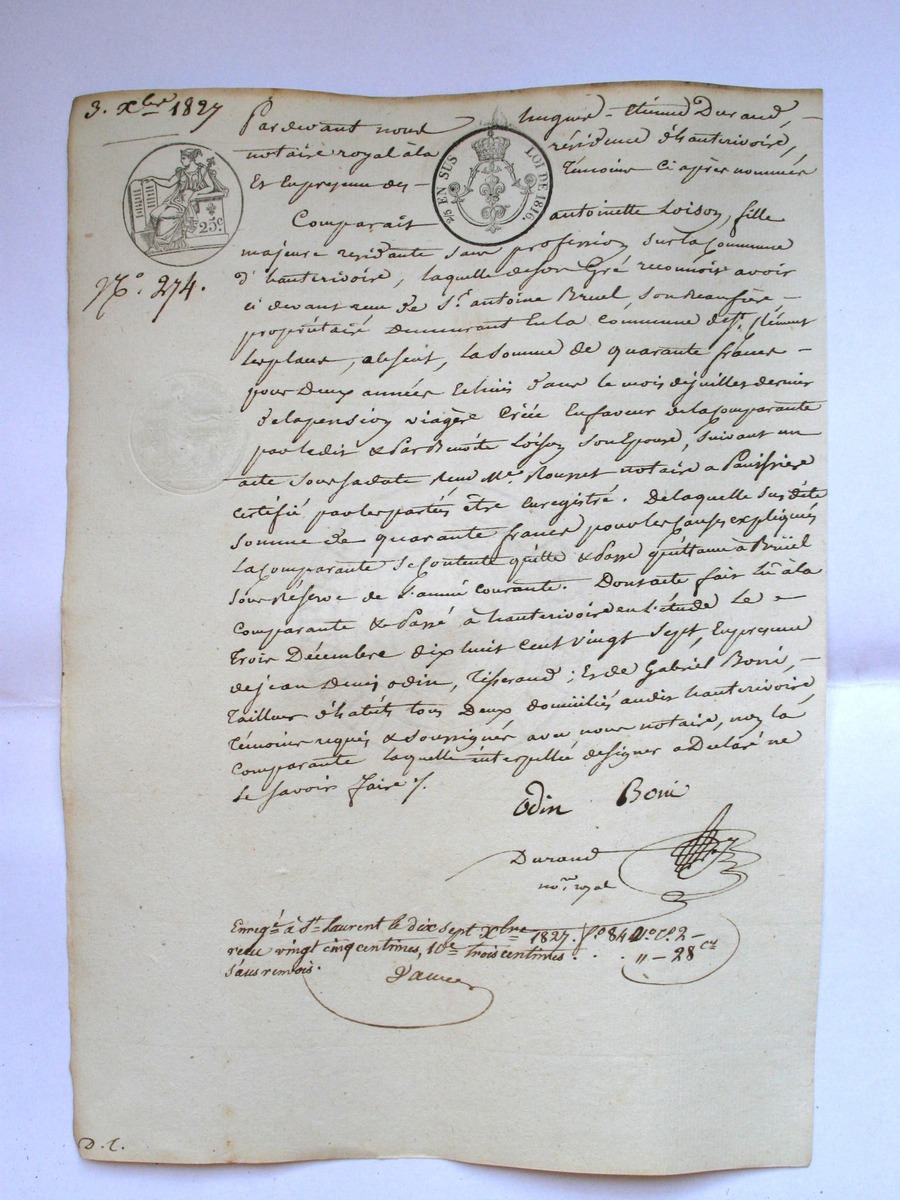 3. Xbre 1827
Pardevant nous hugues-étienne Durand, -
notaire royal à la résidence d'hauterivoire,
Et En présence des - témoins Ci après nommés
25c
2/5 EN SUS LOI DE 1816.
Comparait antoinette Loison, fille
majeure residante sans profession sur la Commune
N.o 274.
d'hauterivoire, laquelle de son Gré reconnois avoir
ci devant reçu de Sr. antoine Bruel, son Beaufrère -
propriétaire Demeurant En la Commune de St. Clément
les places, absent, la Somme de quarante francs -
pour Deux années Echuës dans le mois de juillet dernier
de la pension viagère Créée En faveur de la Comparante
par ledit & Par Benoite Loison son Epouse, suivant un
acte Sous sa date reçu Me. Rousset notaire a Panissière
Certifié par les parties être Enregistré. De laquelle Susdite
Somme de quarante francs pour les Causes expliquées
la Comparante Se Contente quitte & Passe quittance à Brüel
Sous Réserve de l'année Courante. Dont acte fait lû à la
Comparante & Passé à hauterivoire en l'étude Le -
trois Décembre dix huit cent vingt Sept, En présence
de jean Denis odin, Tisserand; Et de Gabriel Boni, -
tailleur d'habits tous Deux domiciliés audit hauterivoire
témoins requis & Soussignés avec nous notaire, non la
Comparante laquelle interpellée de Signer a Déclaré ne
le Savoir faire ./.
Odin Boni
Durand
nore. royal
Enregé à St. Laurent le dix sept Xbre 1827. fo. 84 Vo. C. 2 -
reçu vingt cinq centimes, 10e trois centimes . . . " - 28 ces
Sans renvois.
D. C.